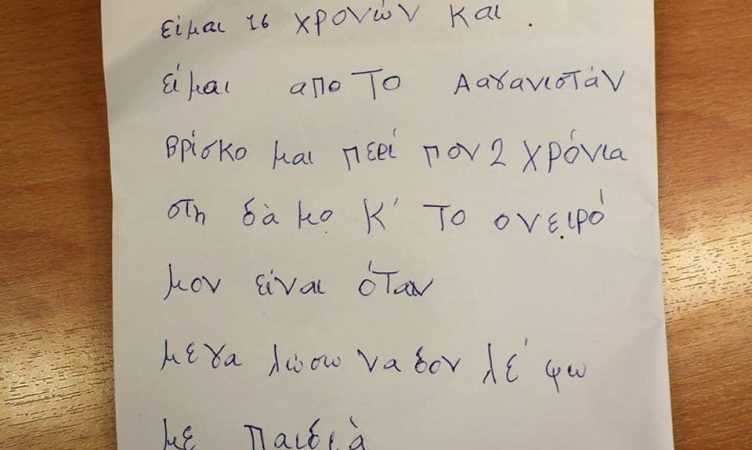 είμαι 16 χρονών και .
είμαι απο Το Ααγανιστάν
Βρίσκο μαι περί πον 2 χρόνια
στη δὰ μο Κ' το ονειρό
μον είναι όταν
μεγα λώσω να δον λέ' ψω
με παιδιὰ